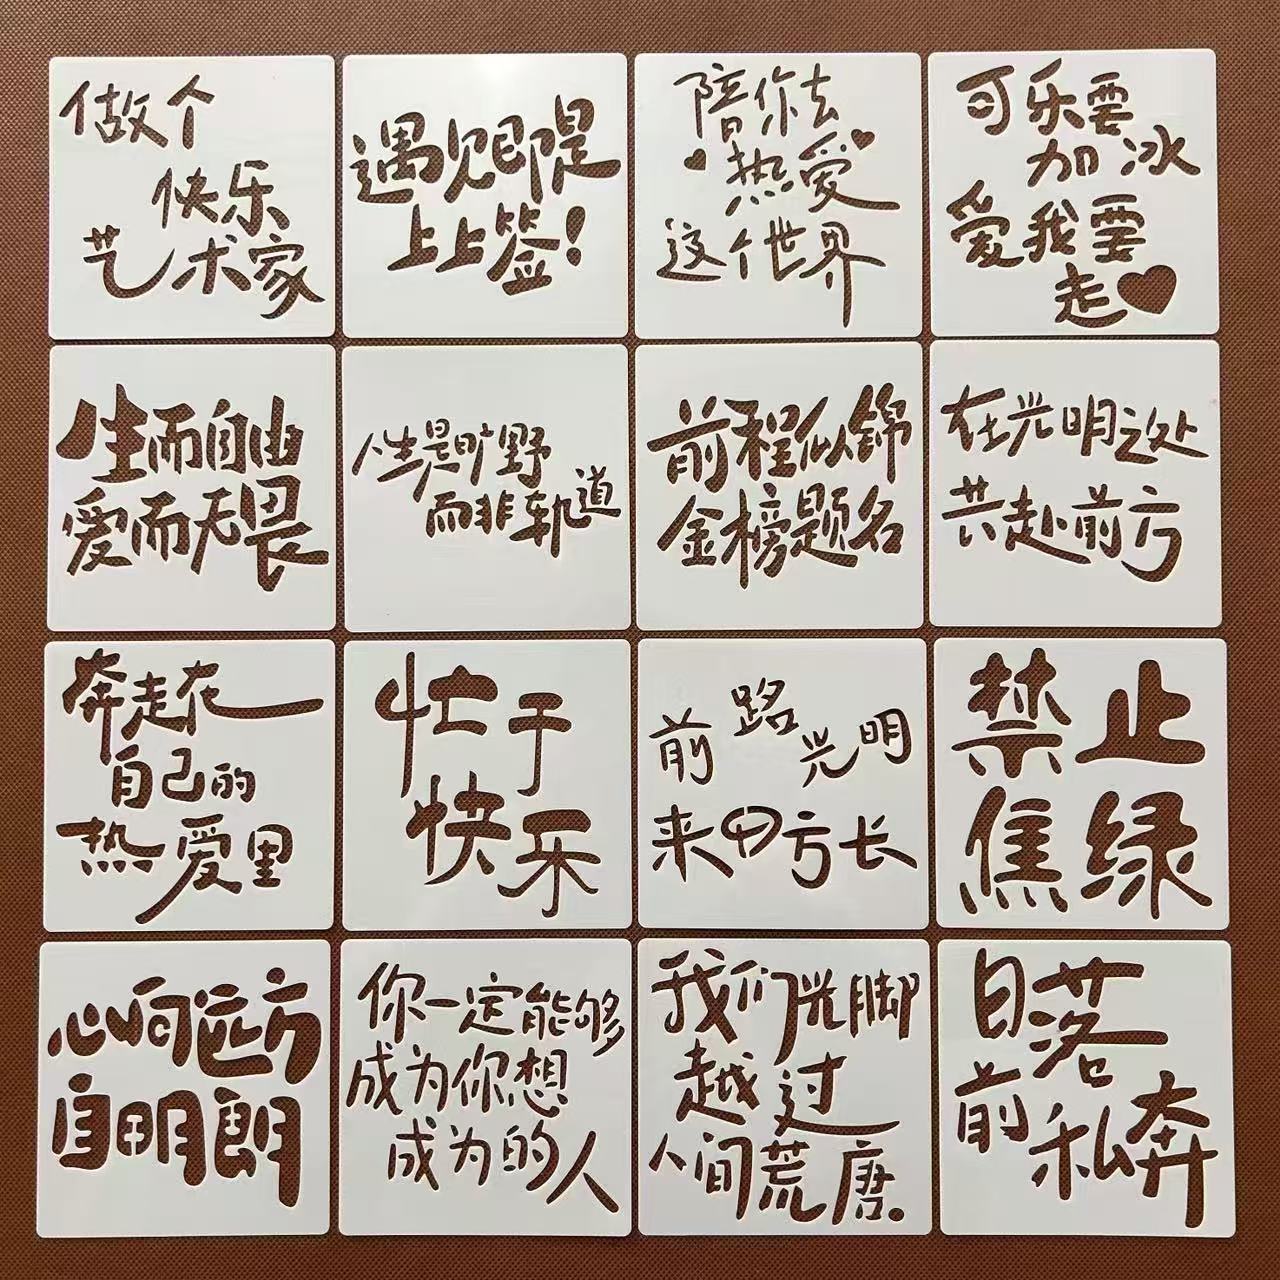 做个
快乐
艺术家
遇见即是
上上签!
陪你去
热爱
这个世界
可乐要
加冰
爱我要
走
生而自由
爱而无畏
人生是旷野
而非轨道
前程似锦
金榜题名
在光明之处
共赴前方
奔走在
自己的
热爱里
忙于
快乐
前路光明
来日方长
禁止
焦绿
心向远方
自明朗
你一定能够
成为你想
成为的人
我们光脚
越过
人间荒唐.
日落
前私奔